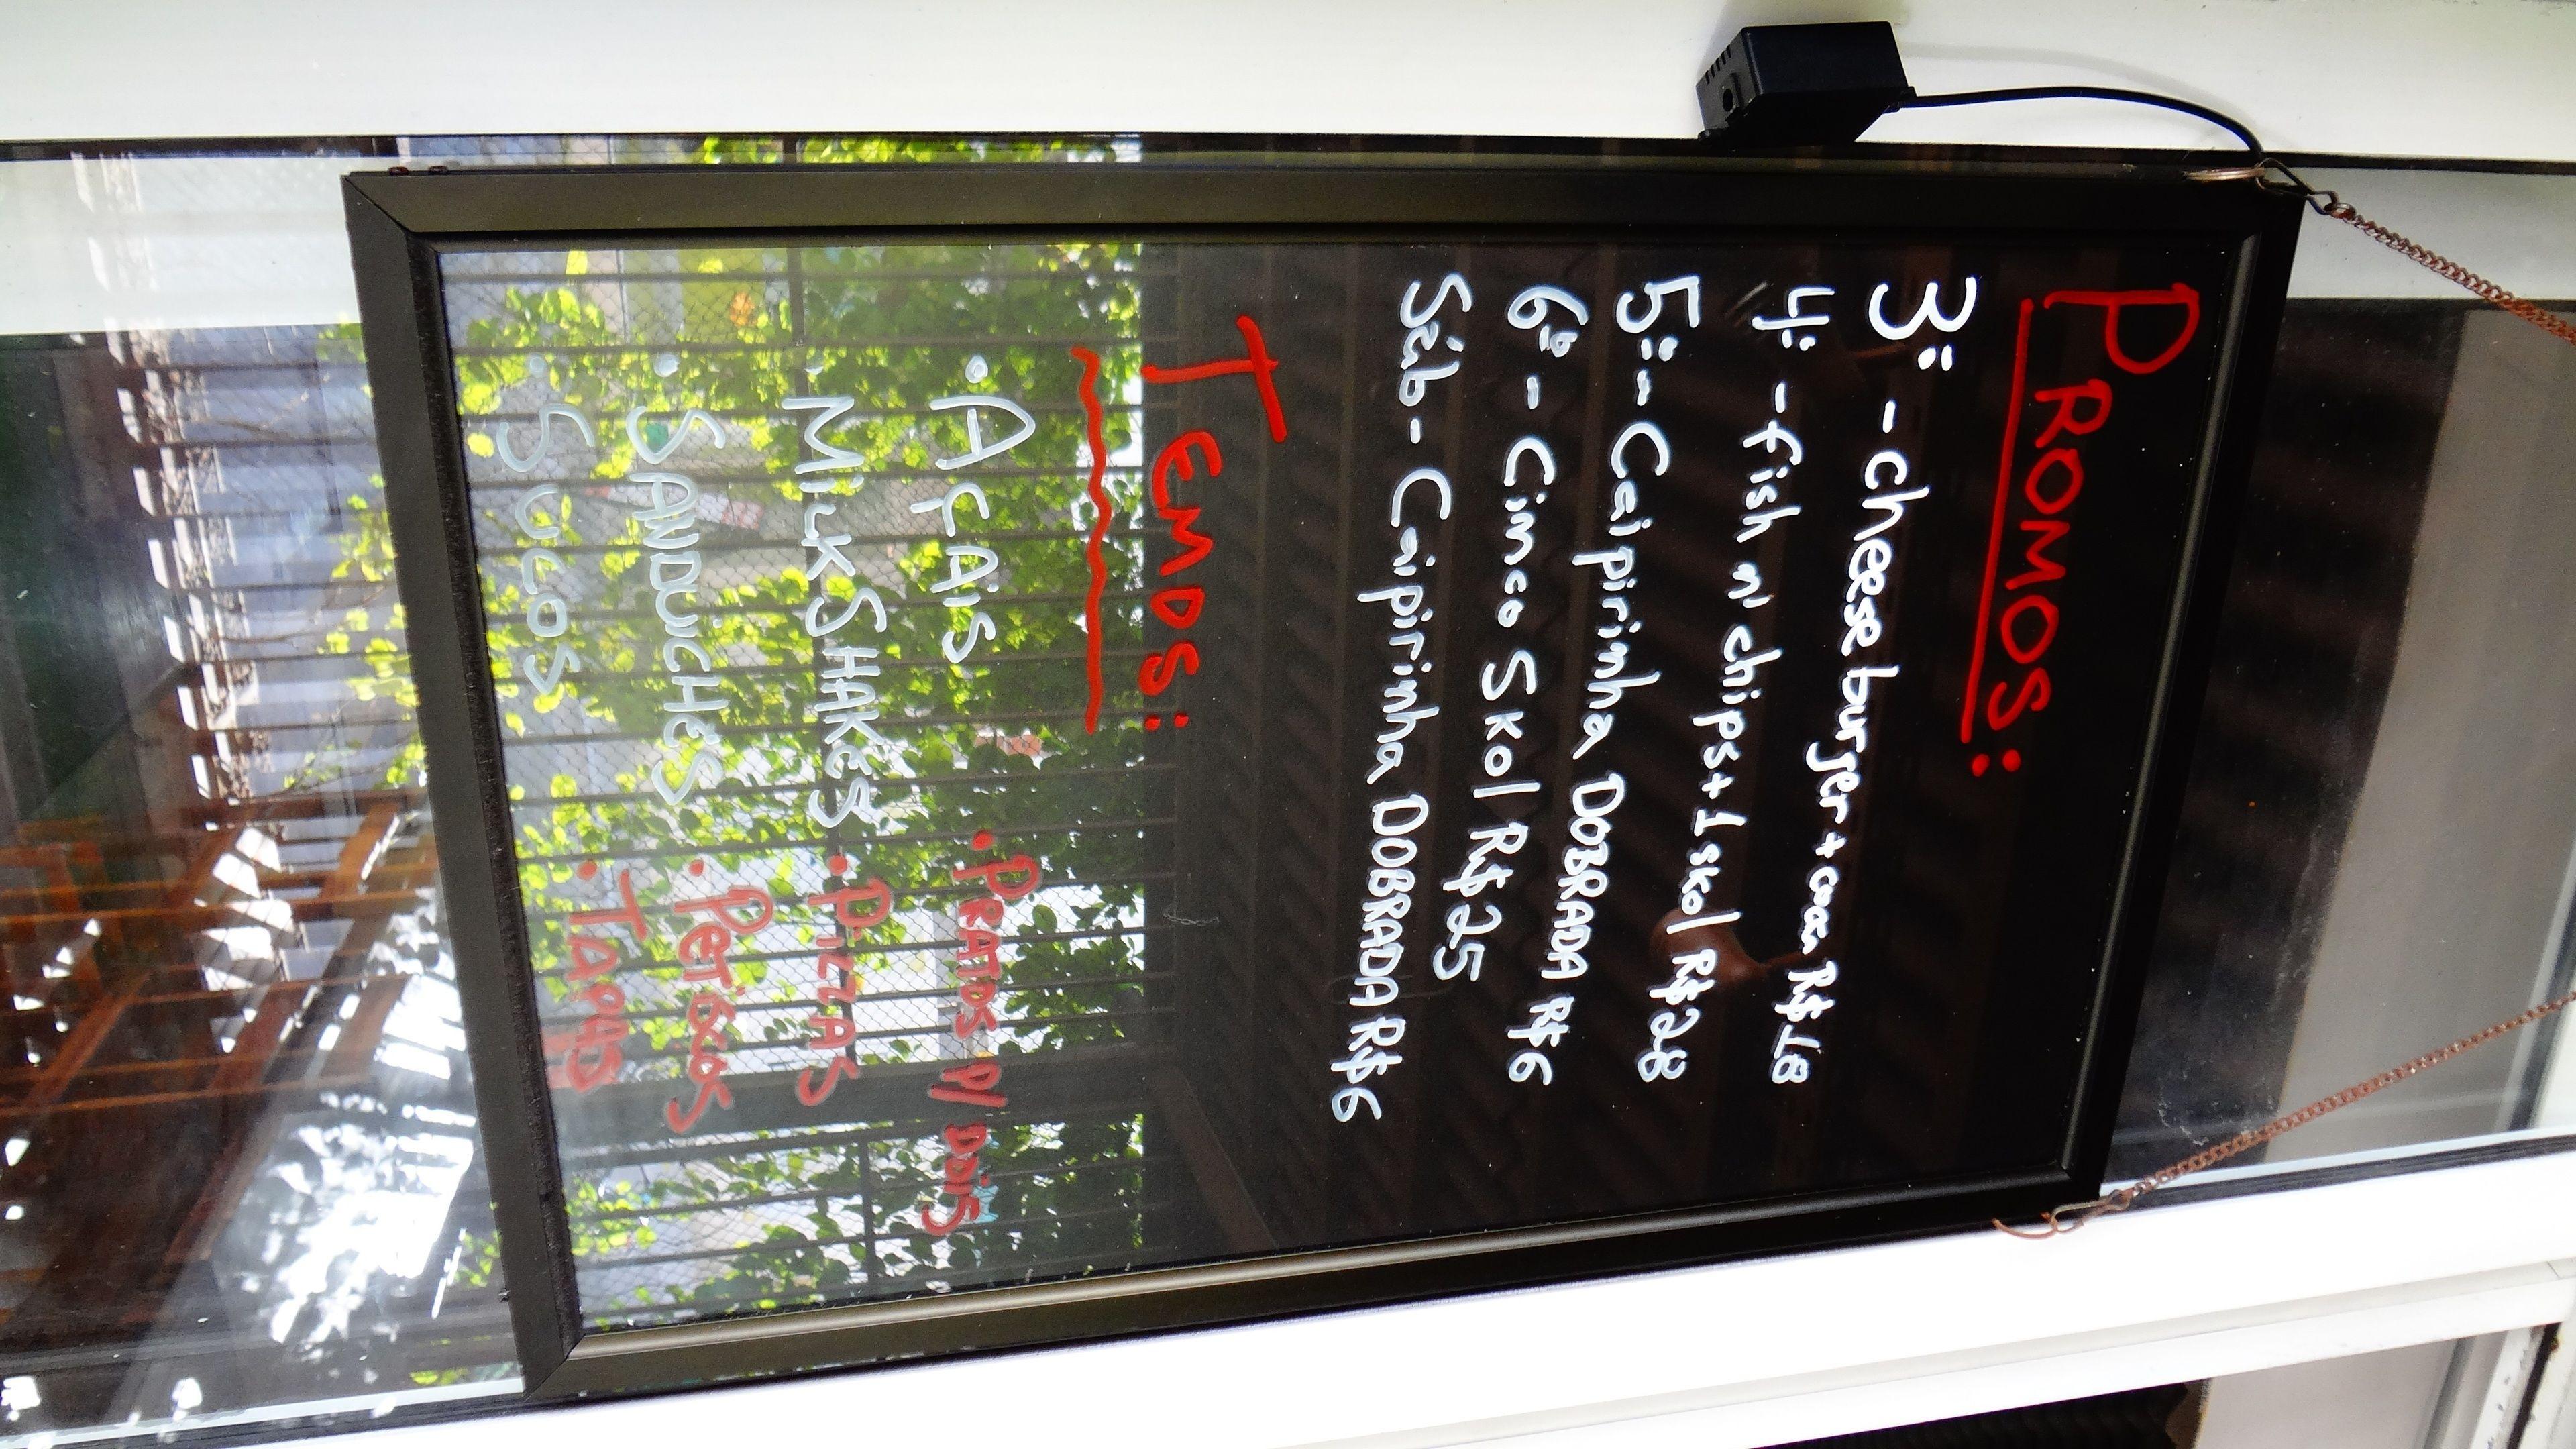 PROMOS:
3ª - cheese burger + coca R$ 18
4ª - fish n' chips + 1 skol R$ 28
5ª - Caipirinha DOBRADA R$ 6
6ª - Cinco Skol R$ 25
Sáb - Caipirinha DOBRADA R$ 6
TEMOS:
• AÇAÍS • PRATOS P/ DOIS
• MILKSHAKES • PIZZAS
• SANDUICHES • PETISCOS
• SUCOS • TAPAS